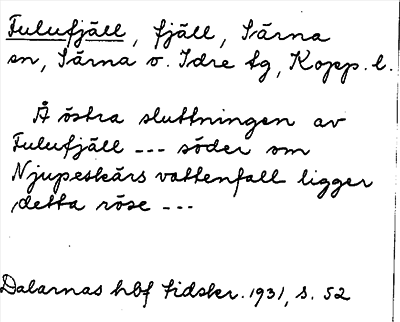 Fulufjäll, fjäll, Särna
sn, Särna o. Idre tg, Kopp. l.
Å östra sluttningen av
Fulufjäll --- söder om
Njupeskärs vattenfall ligger
detta röse ---
Dalarnas hbf tidskr. 1931, s. 52